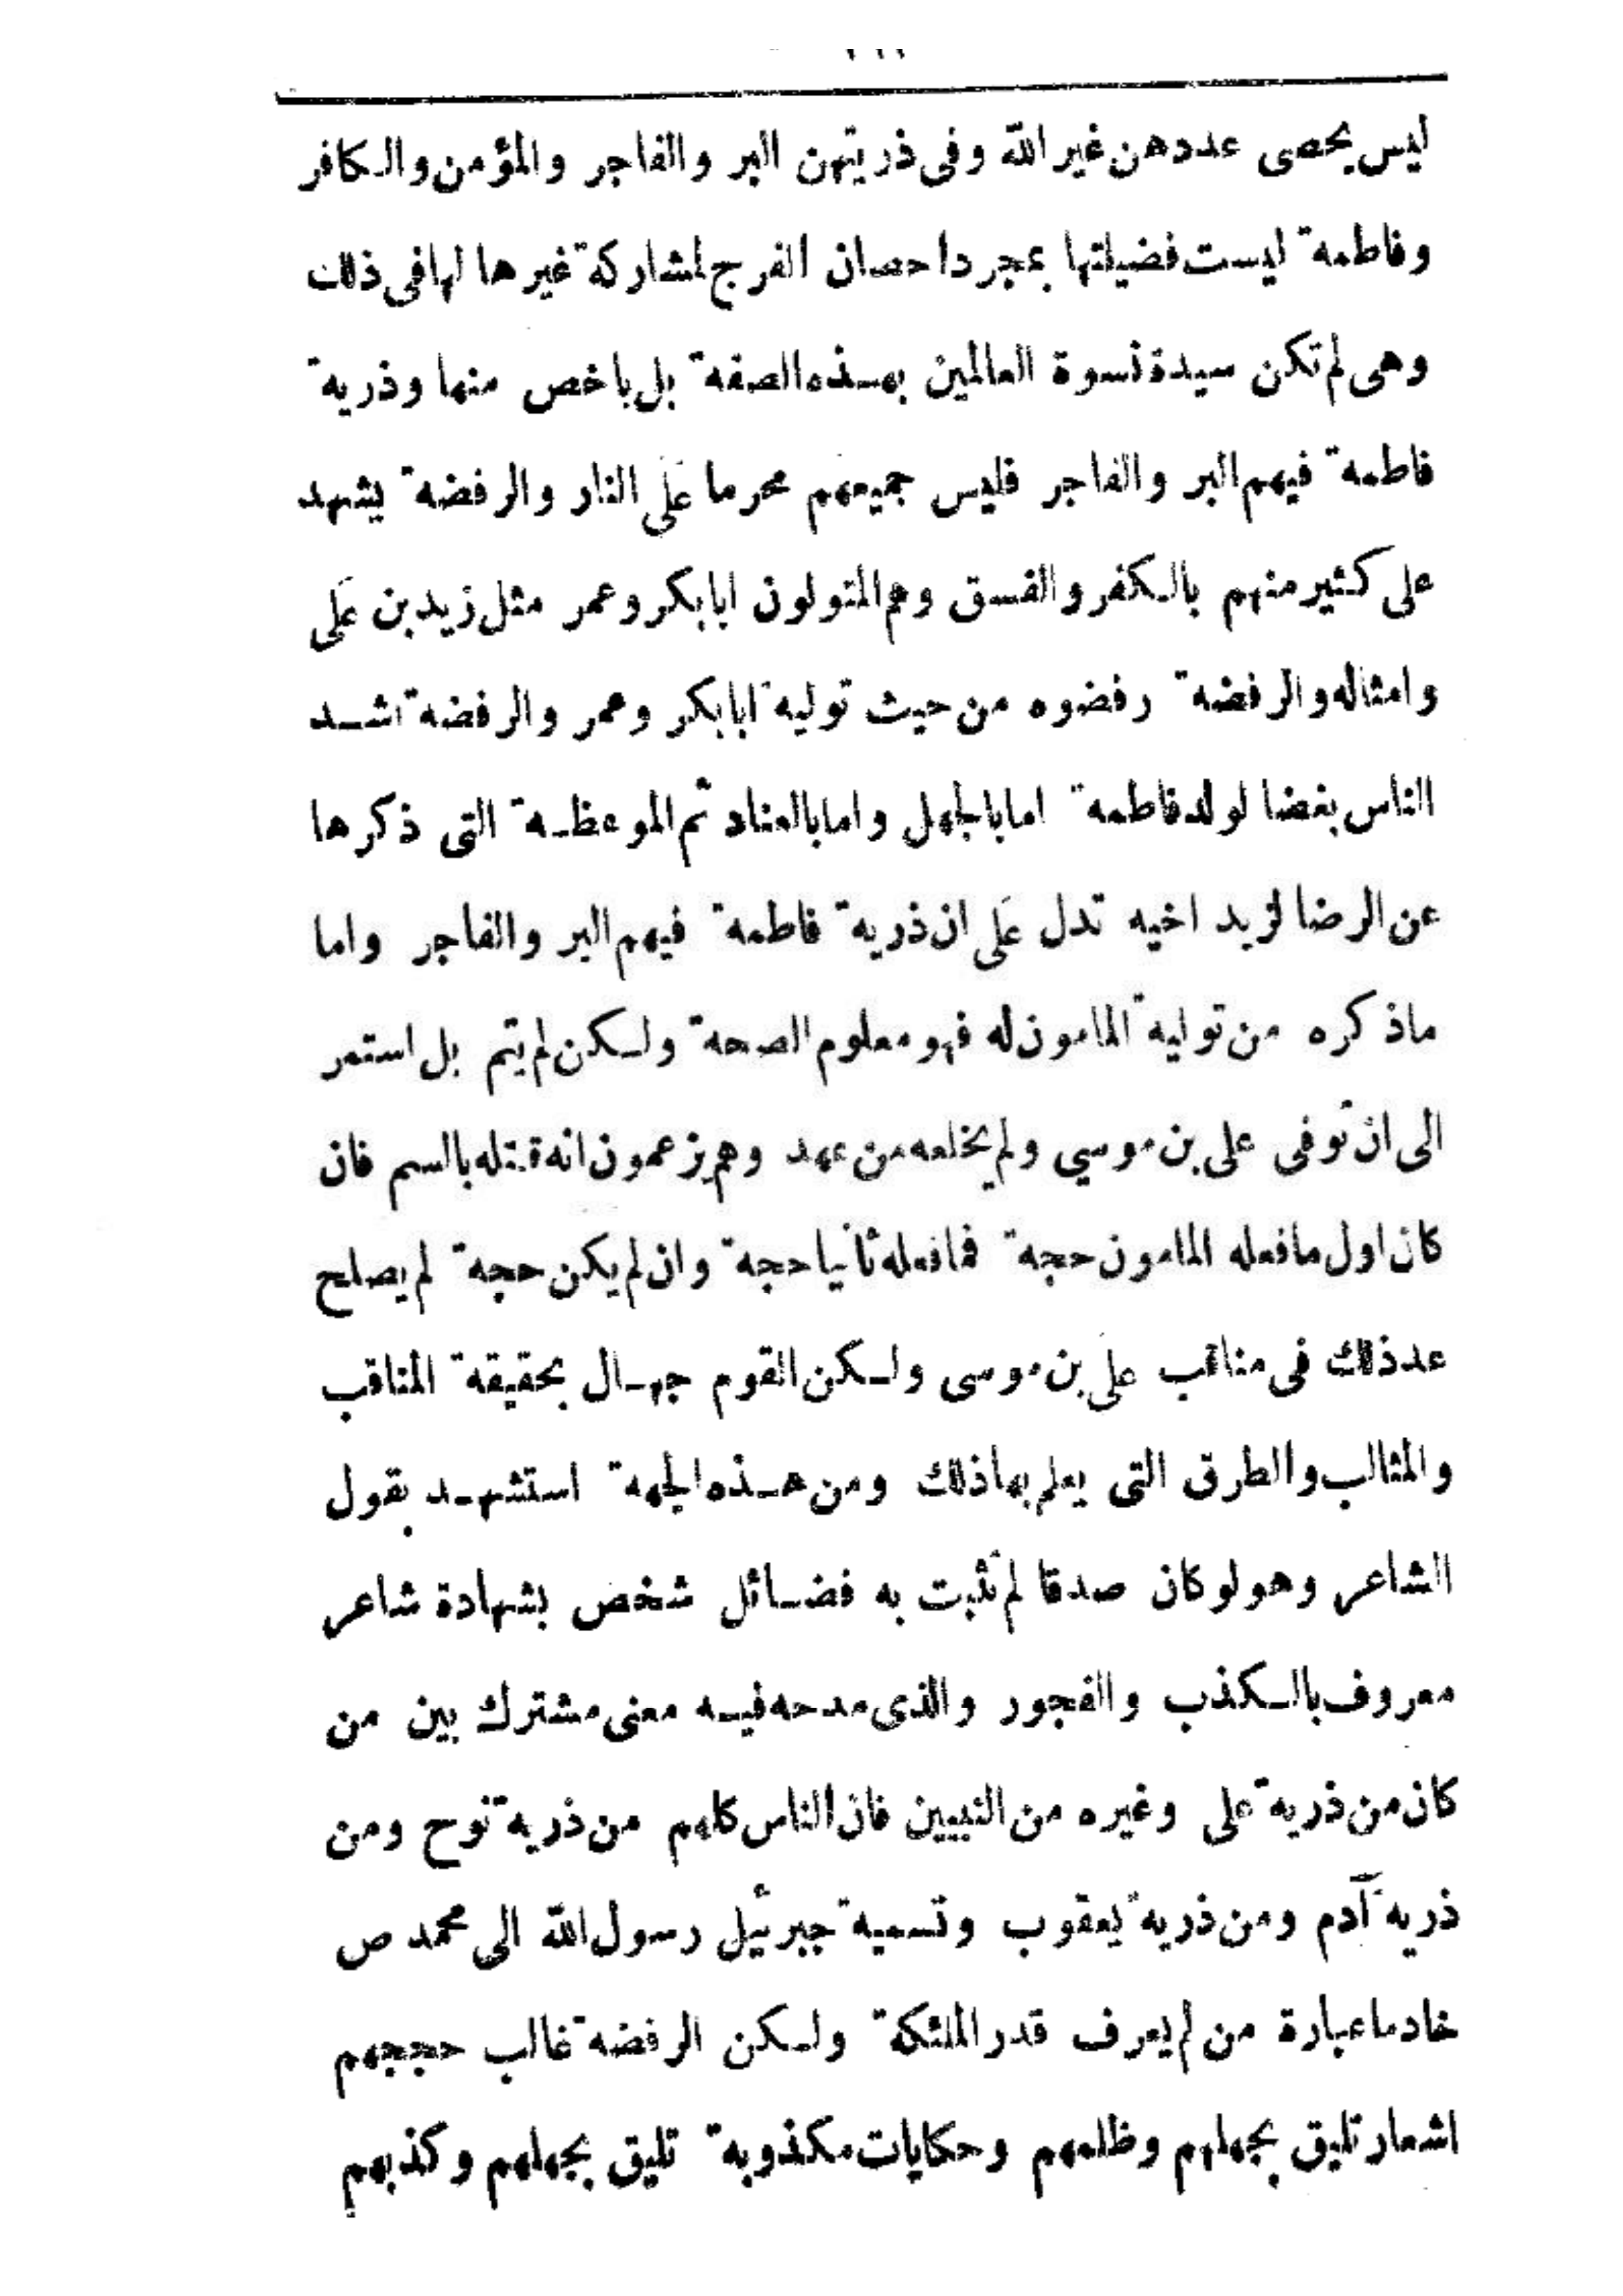 ليس يحصى عددهن غير الله وفى ذريتهن البر والفاجر والمؤمن والكافر
وفاطمة ليست فضيلتها بمجرد احصان الفرج لمشاركة غيرها لها فى ذلك
وهى لم تكن سيدة نسوة العالمين بهذه الصفة بل باخص منها وذرية
فاطمة فيهم البر والفاجر فليس جميعهم محرما على النار والرفضة يشهد
على كثير منهم بالكفر والفسق وهم المتولون ابابكر وعمر مثل زيد بن على
وامثاله والرفضة رفضوه من حيث توليه ابابكر وعمر والرفضة اشد
الناس بغضا لولد فاطمة اما بالجهل واما بالعناد ثم الموعظة التى ذكرها
عن الرضا لزيد اخيه تدل على ان ذرية فاطمة فيهم البر والفاجر واما
ماذكره من تولية المامون له فهو معلوم الصحة ولكن لم يتم بل استمر
الى ان توفى على بن موسي ولم يخلعه من عهد وهم يزعمون انه قتله بالسم فان
كان اول مافعله المامون حجة فمافعله ثانيا حجة وان لم يكن حجة لم يصلح
عد ذلك فى مناقب على بن موسى ولكن القوم جهال بحقيقة المناقب
والمثالب والطرق التى يعلم بها ذلك ومن هذه الجهة استشهد بقول
الشاعر وهو لو كان صدقا لم تثبت به فضائل شخص بشهادة شاعر
معروف بالكذب والفجور والذى مدحه فيه معنى مشترك بين من
كان من ذرية على وغيره من النبيين فان الناس كلهم من ذرية نوح ومن
ذرية آدم ومن ذرية يعقوب وتسمية جبرئيل رسول الله الى محمد ص
خادما عبارة من لم يعرف قدر الملئكة ولكن الرفضة غالب حججهم
اشعار تليق بجهلهم وظلمهم وحكايات مكذوبة تليق بجهلهم وكذبهم